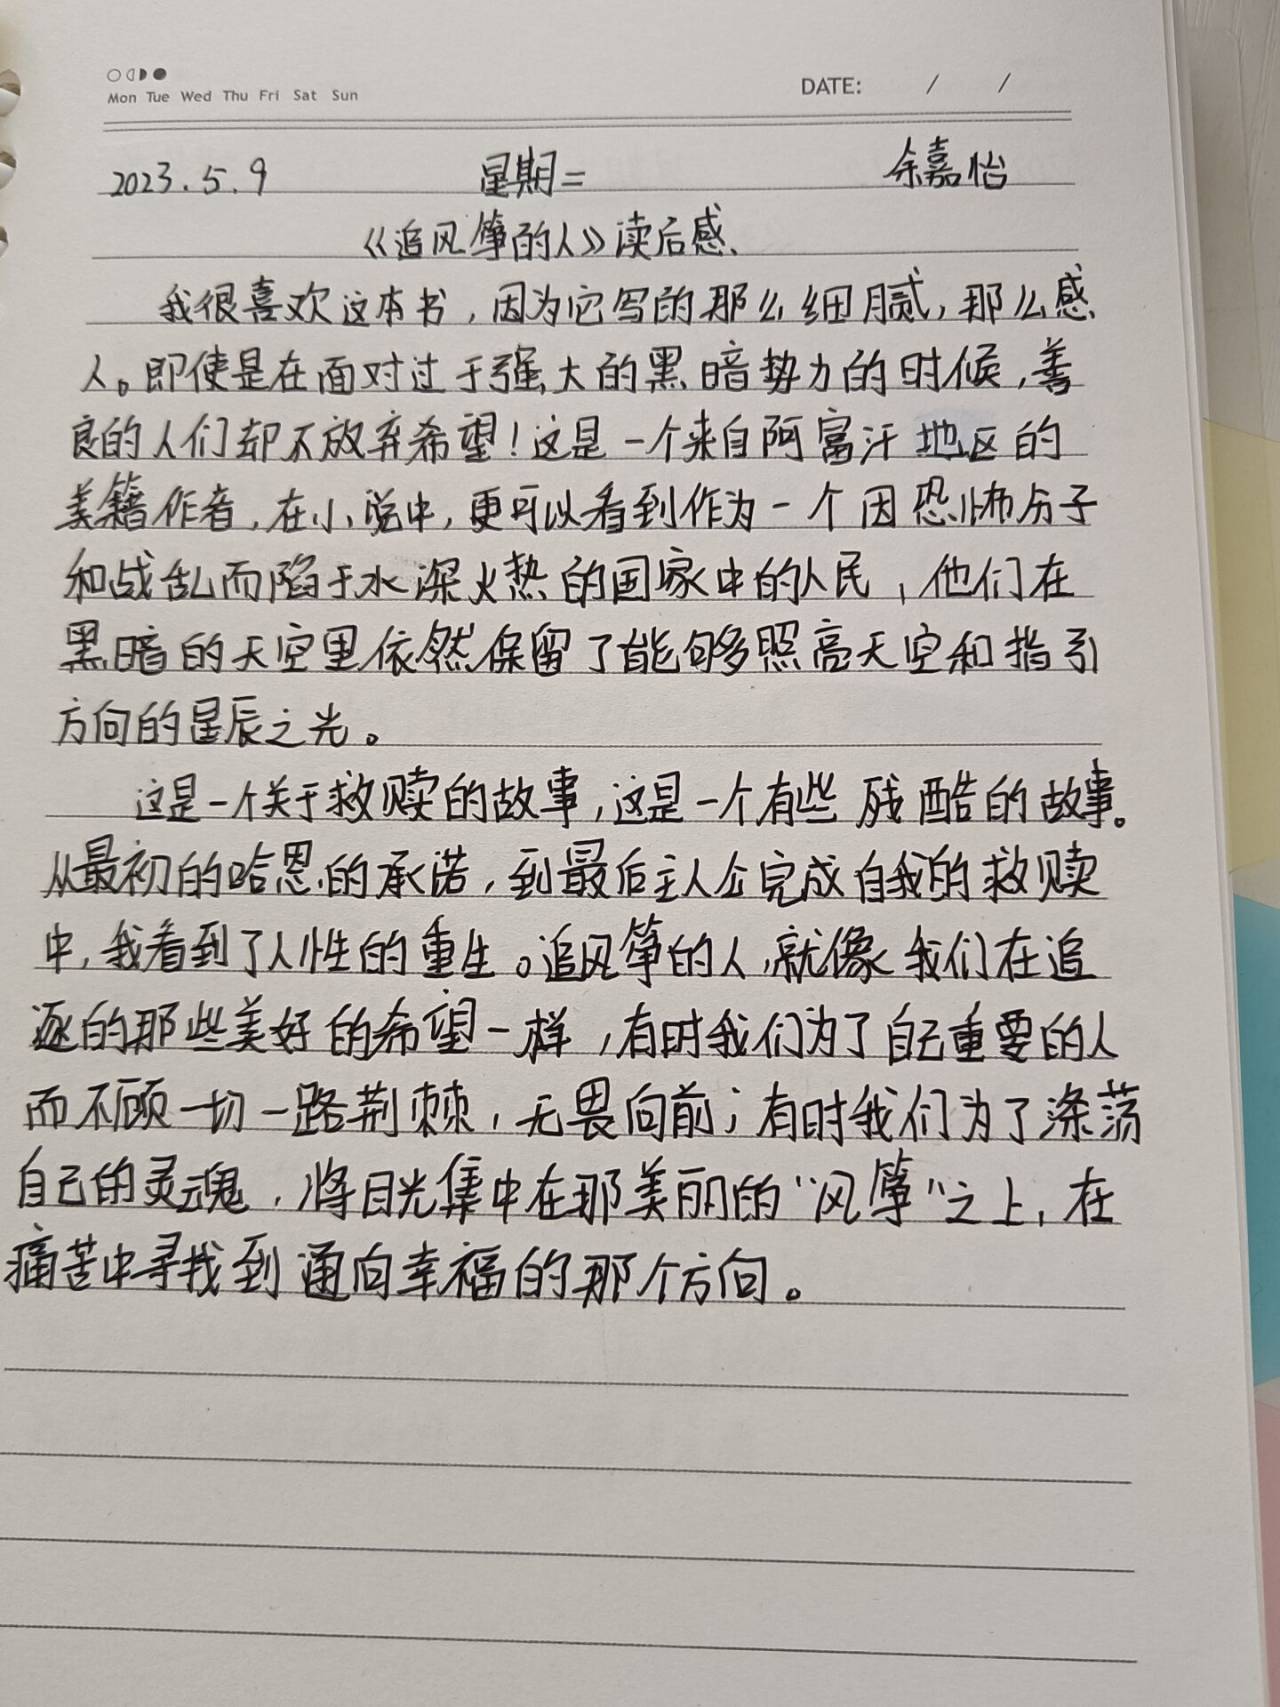 Mon Tue Wed Thu Fri Sat Sun
DATE: / /
2023.5.9 星期二 余嘉怡
《追风筝的人》读后感、
我很喜欢这本书，因为它写的那么细腻，那么感
人。即使是在面对过于强大的黑暗势力的时候，善
良的人们却不放弃希望！这是一个来自阿富汗地区的
美籍作者，在小说中，更可以看到作为一个因恐怖分子
和战乱而陷于水深火热的国家中的人民，他们在
黑暗的天空里依然保留了能够照亮天空和指引
方向的星辰之光。
这是一个关于救赎的故事，这是一个有些残酷的故事。
从最初的哈恩的承诺，到最后主人公完成自我的救赎
中，我看到了人性的重生。追风筝的人，就像我们在追
逐的那些美好的希望一样，有时我们为了自己重要的人
而不顾一切一路荆棘，无畏向前；有时我们为了涤荡
自己的灵魂，将目光集中在那美丽的“风筝”之上，在
痛苦中寻找到通向幸福的那个方向。